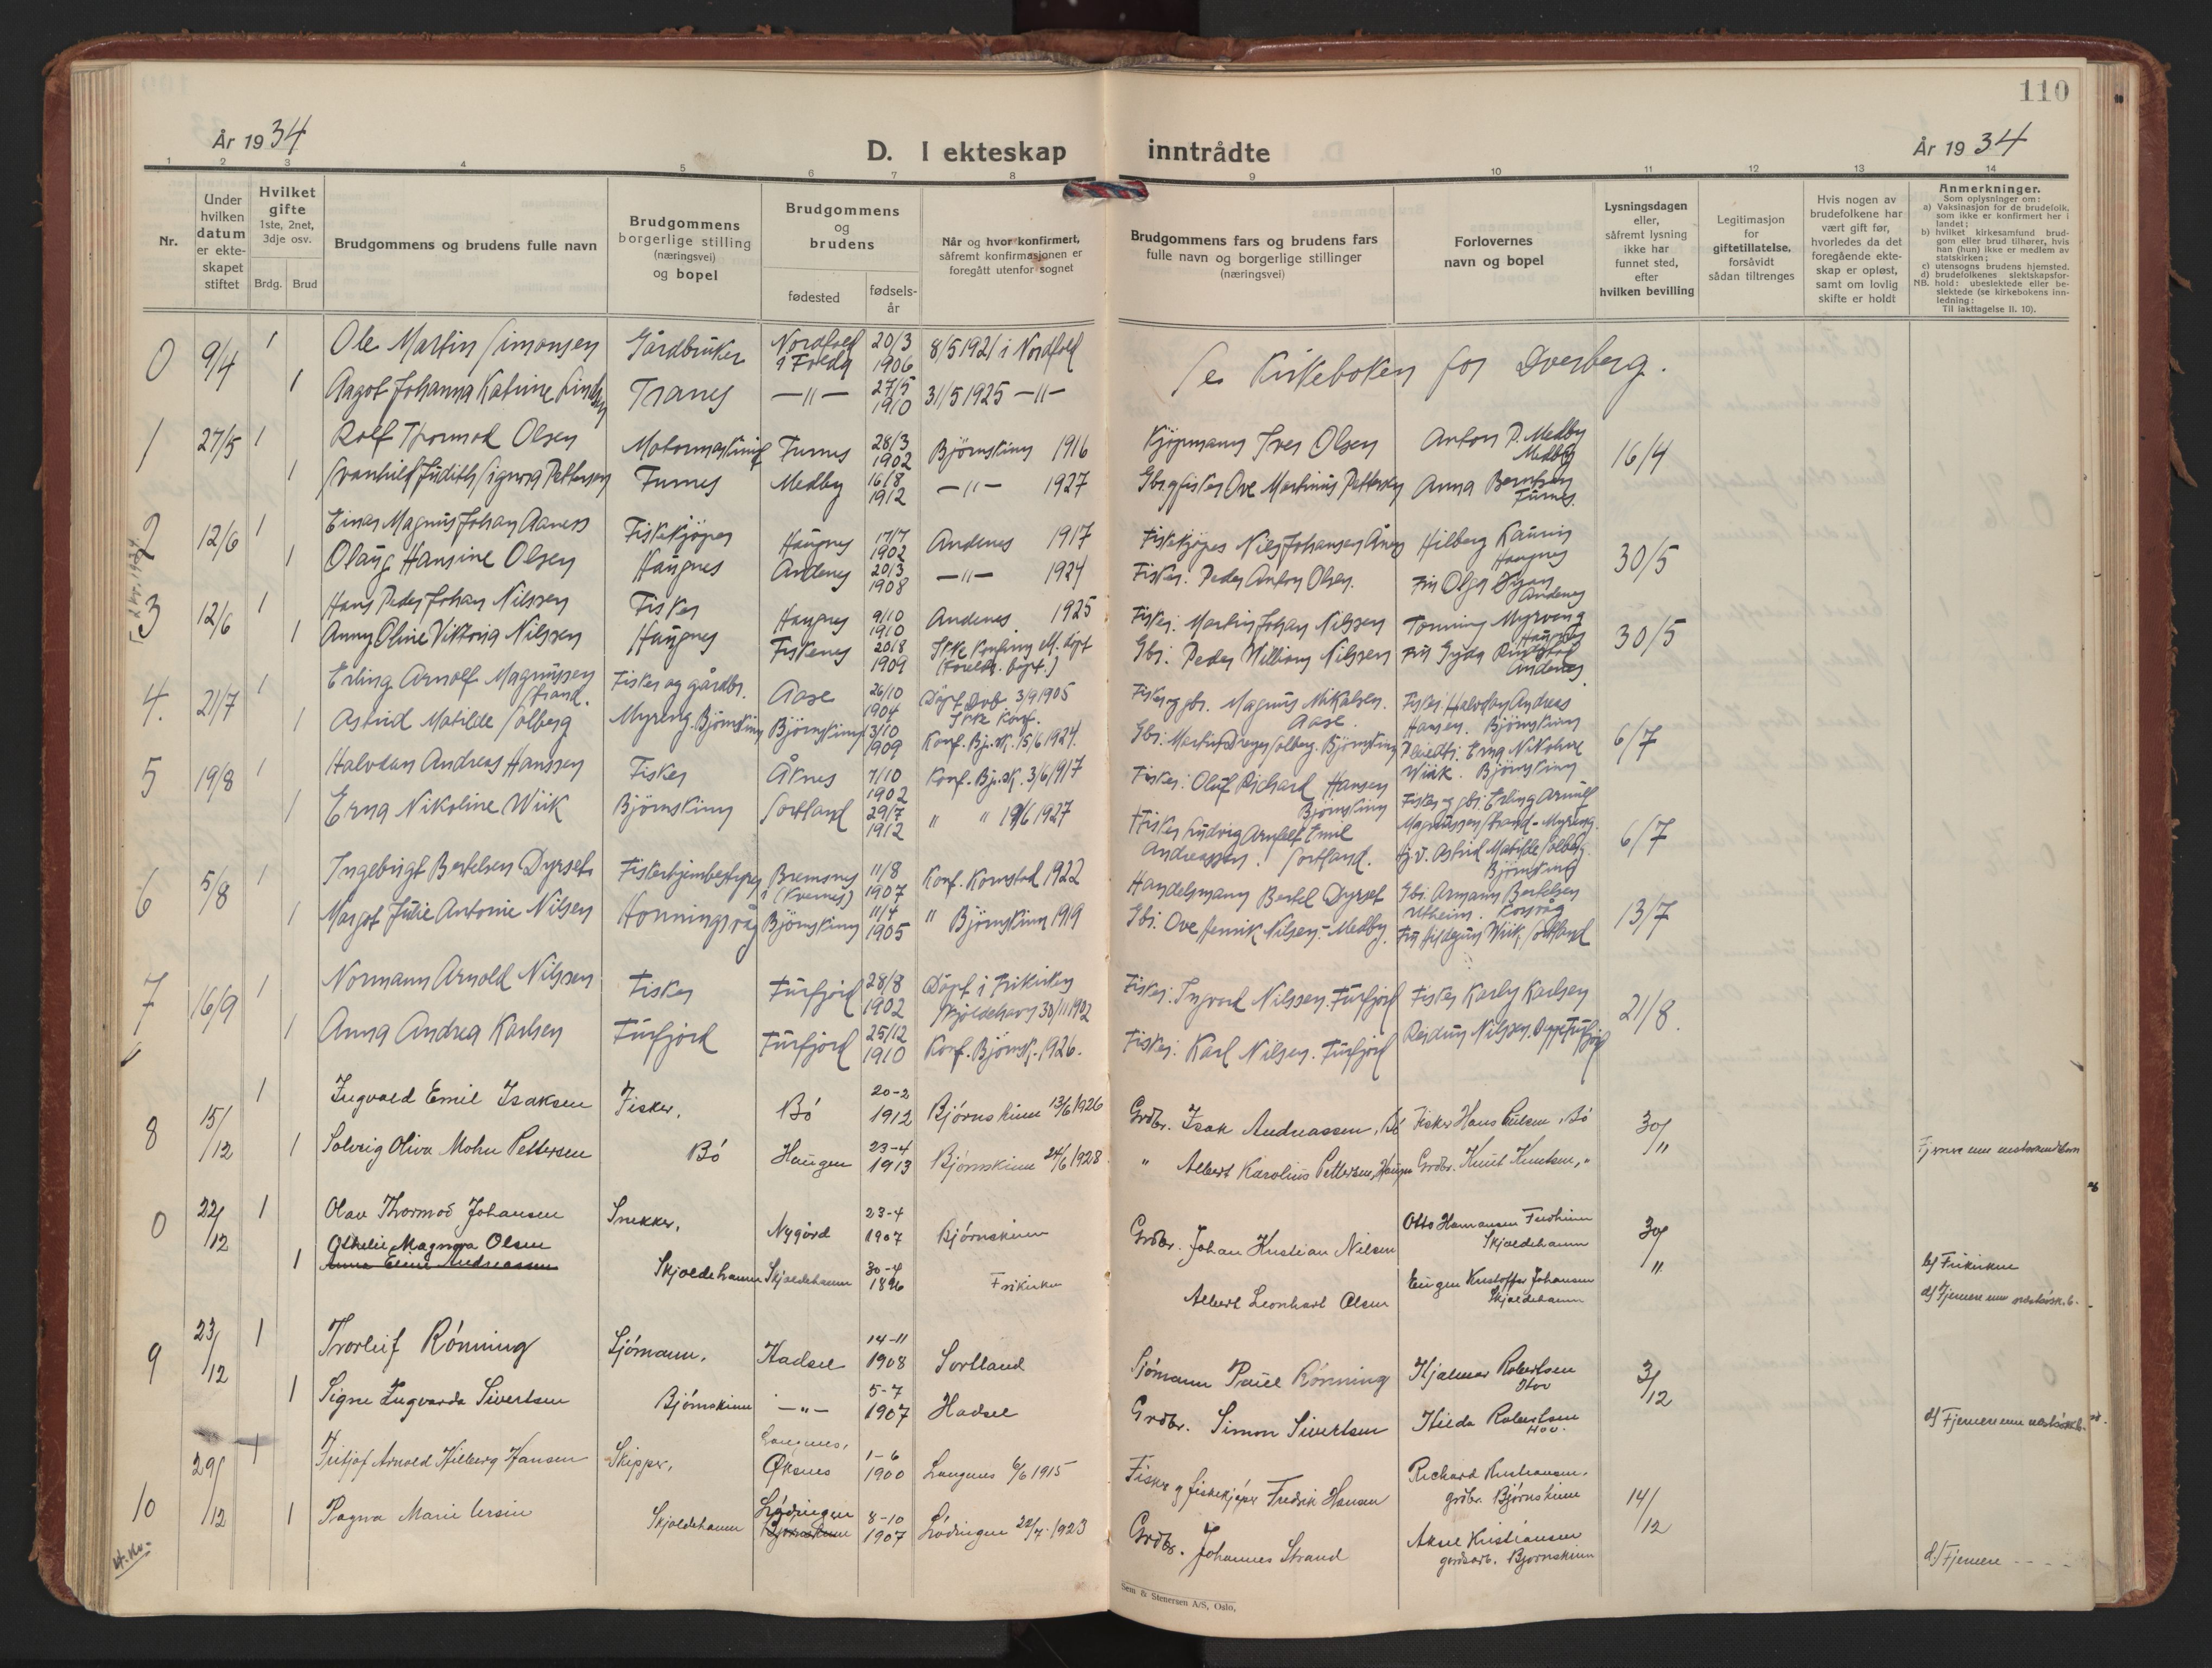 110
År 1934
D. I ekteskap inntrådte
År 1934
1 2 3 4 5 6 7 8 9 10 11 12 13 14
Nr.
Under hvilken datum er ekteskapet stiftet
Hvilket gifte 1ste, 2net, 3dje osv.
Brdg. Brud
Brudgommens og brudens fulle navn
Brudgommens borgerlige stilling (næringsvei) og bopel
Brudgommens og brudens
fødested
fødsels-år
Når og hvor konfirmert, såfremt konfirmasjonen er foregått utenfor sognet
Brudgommens fars og brudens fars fulle navn og borgerlige stillinger (næringsvei)
Forlovernes navn og bopel
Lysningsdagen eller, såfremt lysning ikke har funnet sted, efter hvilken bevilling
Legitimasjon for giftetillatelse, forsåvidt sådan tiltrenges
Hvis nogen av brudefolkene har vært gift før, hvorledes da det foregående ekteskap er opløst, samt om lovlig skifte er holdt
Anmerkninger.
Som oplysninger om:
a) Vaksinasjon for de brudefolk, som ikke er konfirmert her i landet;
b) hvilket kirkesamfund brudgom eller brud tilhører, hvis han (hun) ikke er medlem av statskirken;
c) utensogns brudens hjemsted.
d) brudefolkenes slektskapsforhold: ubeslektede eller beslektede (se kirkebokens innledning:
NB.
Til iakttagelse II. 10).
0 9/4 1 Ole Martin Simonsen Gårdbruker Nordfold i Folda 20/3 1906 8/5 1921 i Nordfold Se Kirkeboken for Dverberg.
1 Aagot Johanna Katrine Tranes —"— 27/5 1910 31/5 1925 —"—
1 27/5 1 Rolf Thormod Olsen Furnes 28/3 1902 Björnskinn 1916 Kjöpmann Iver Olsen Anton P. Medby Medby 16/4
1 Svanhild Judith Signora Pettersen Furnes Medby 16/8 1912 —"— 1927 Gbr. og fisker Ove Martinus Pettersen Anna Berntsen Furnes.
2 12/6 1 Einar Magnus Johan Aaness Fiskekjöper Haugnes 17/7 1902 Andenes 1917 Fiskekjöper Nils Johansen Hilberg Haugnes 30/5
1 Olaug Hansine Olsen Haugnes Andenes 20/3 1908 —"— 1924 Fisker: Peder Anton Olsen. Fru Olga Andenes
3 12/6 1 Hans Peder Johan Nilssen Fisker Haugnes 9/10 1910 Andenes 1925 Fisker: Martin Johan Nilssen Haugnes 30/5
1 Anny Oline Viktoria Nilssen Haugnes Fiskenes 20/8 1909 Ikke Konfirm. Gbr: Peder Nilssen Andenes.
4. 21/7 1 Erling Arnolf Magnussen Strand. Fisker og gårdbr. Aase 26/10 1904 Döpt Dvb. 3/9 1905 Ikke Konf. Fisker og gbr. Magnus Mikalsen. Aase. Fisker Halvdan Andreas Hansen. Björnskinn 6/7
1 Astrid Matilde Solberg Myreng. Björnskinn Björnskinn 13/10 1909 Konf. Bj.sk. 15/6 1924. Gbr: Martin Dreyer Solberg. Björnskinn Erna Nikoline Wiik. Björnskinn
5 19/8 1 Halvdan Andreas Hanssen Fisker Åknes 7/10 1902 Konf. Bj.sk. 3/6 1917 Fisker: Oluf Richard Hansen Björnskinn Fisker og gbr. Erling Arnulf Magnussen Strand - Myreng. 6/7
1 Erna Nikoline Wiik Björnskinn Sortland 29/7 1912 " " 19/6 1927 Fisker Ludvig Emil Andreassen. Sortland. Astrid Matilde Solberg. Björnskinn
6 5/8 1 Ingebrigt Bertelsen Dyrset Fiskerhjembestyrer Bremsnes i (Kvernes) 11/8 1907 Konf. Kornstad 1922 Handelsmann Bertel Dyrset Gbr. Armann Bertelsen 13/7
1 Margot Julie Antonie Nilsen Honningsvåg Björnskinn 11/4 1905 " Björnskinn 1919 Gbr. Ove Henrik Nilsen - Medby. Wiik, Sortland
7 16/9 1 Normann Arnold Nilssen Fisker Turfjord 28/8 1902 Döpt i Frikirken Skjoldehavn 30/11 1902 Fisker: Ingvard Nilssen. Turfjord Fisker Karly Karlsen 21/8.
1 Anna Andrea Karlsen Turfjord Turfjord 25/12 1910 Konf. Björnsk. 1926. Fisker: Karl Nilsen. Turfjord Reidun Nilssen.
8 15/12 1 Ingvald Emil Isaksen Fisker, Bö 20-2 1912 Bjórnskinn 13/6 1926 Grdbr. Isak Andreassen, Bö Fisker Hans , Bö 30/11
1 Solveig Oliva Mohn Pettersen Bö Haugen 23-4 1913 Bjórnskinn 24/6 1928 " Albert Karolius Pettersen, Haugen Grdbr. Knut Knutsen, " Fjernere enn
0 22/12 1 Olav Thormod Johansen Snekker, Nygård 23-4 1907 Bjórnskinn Grdbr. Johan Kristian Nilsen Otto Skjoldehamn 30/11
1 Othelie Magnora Olsen Skjoldehamn Skjoldehamn 30-4 1896 Frikirken Albert Leonhart Olsen Eugen Kristoffer Johansen Skjoldehamn b) Frikirken
d) Fjernere enn
9 23/12 1 Thorleif Rónning Sjómann, Hadsel 14-11 1908 Sortland Sjómann Paul Rónning Hjalmar Robertsen Hov 3/12
1 Signe Ingvarda Sivertsen Bjórnskinn —"— 5-7 1907 Hadsel Grdbr. Simon Sivertsen Hilda Robertsen Hov. d) Fjernere enn
10 29/12 1 Fritjof Arnold Hilberg Hansen Skipper, Langenes, Øksnes 1-6 1900 Langenes 6/6 1915 Fisker og fiskekjóper Fredrik Hansen Richard Kristiansen, grdbr. Bjórnskinn 14/12
1 Ragna Marie Skjoldehamn Lódingen 8-10 1907 Lódingen 22/7-1923 Grdbr. Johannes Strand Aksel Kristiansen gårdsarb. Bjornskinn d.) Fjernere - - - -
Sem & Stenersen A/S, Oslo.